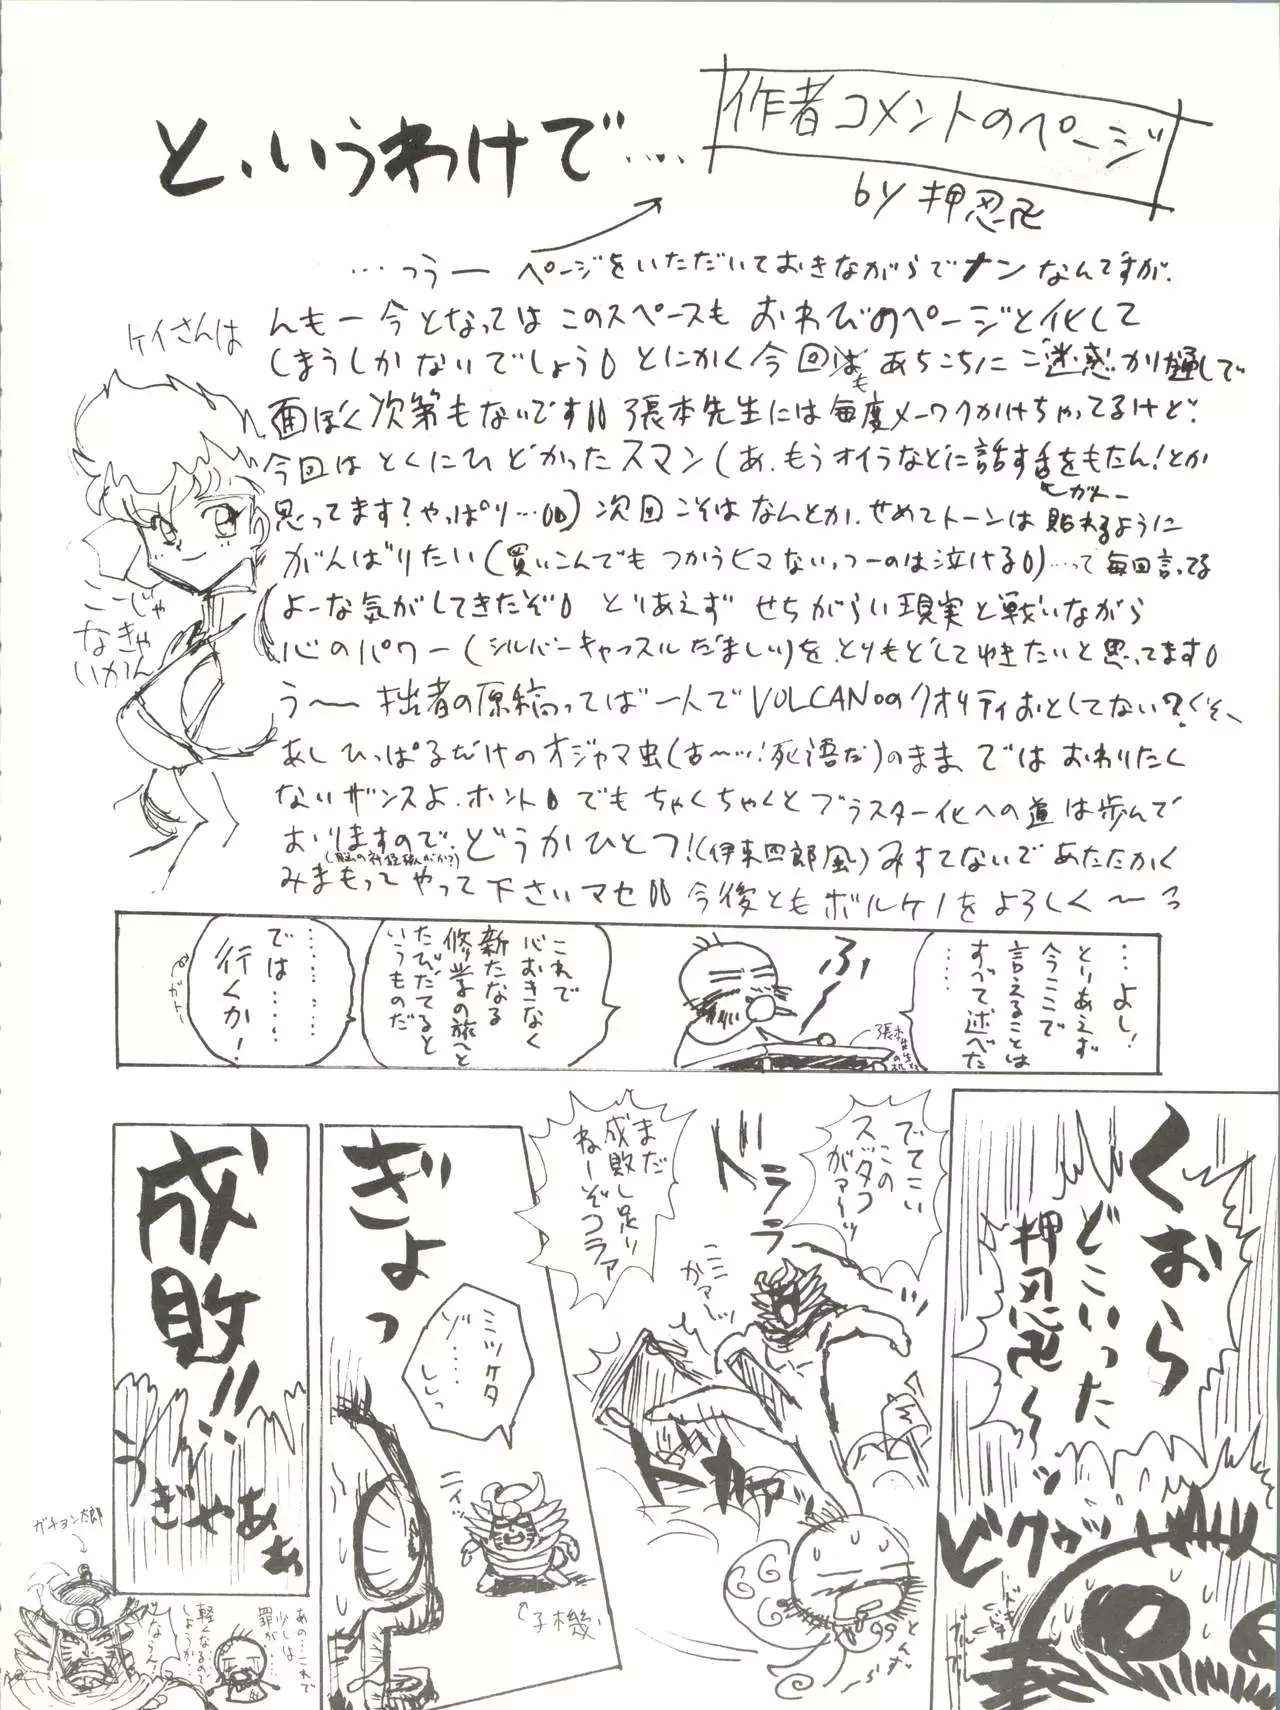 と、いうわけで‥‥
作者コメントのページ
by 押忍
…つうー ページをいただいておきながらでナンなんですが、
んもー今となってはこのスペースもおわびのページと化して
しまうしかないでしょう とにかく今回もあちこちにご迷惑かけ通しで
面ぼく次第もないです 張本先生には毎度メーワクかけちゃってるけど、
今回はとくにひどかったスマン(あ、もうオイラなどに話す舌をもたん!とか
思ってます?やっぱり…)次回こそはなんとか、せめてトーンは貼れるように
がんばりたい(買いこんでもつかうヒマないっつーのは泣ける)…って毎回言ってる
よーな気がしてきたぞ とりあえず せちがらい現実と戦いながら
心のパワー(シルバーキャッスルだましい)を、とりもどしてゆきたいと思ってます
う〜 拙者の原稿ってば一人でVOLCANOのクオリティおとしてない?ぐそ、
あしひっぱるだけのオジャマ虫(古〜ッ!死語だ)のまま、ではおわりたく
ないザンスよ、ホント でもちゃくちゃくとブラスター化への道は歩んで
おりますので、どうかひとつ!(伊東四郎風)みすてないであたたかく
みまもってやって下さいマセ 今後ともボルケーノをよろしく〜っ
ケイさんは
こーじゃ
なきゃ
いかん
…よし!
とりあえず
今ここで
言えることは
すべて述べた
ふー
これで
心おきなく
新たなる
修学の旅へと
たびだてると
いうものだ
では……
……
行くか!
くおら
どこいった
押忍
ビクゥッ
でてこい
この
スットコ
がァーッ
まだ
成敗し足りねーぞコラァ
ドララララ
ドカァァン
ぎょっ
ミツケタ
ゾ……
ニイッ
↑子機
成敗!!
うぎゃあぁぁ
ガチョン太郎
あの…これで
少しは
罪が…
軽くなるので
しょうか…
ならん